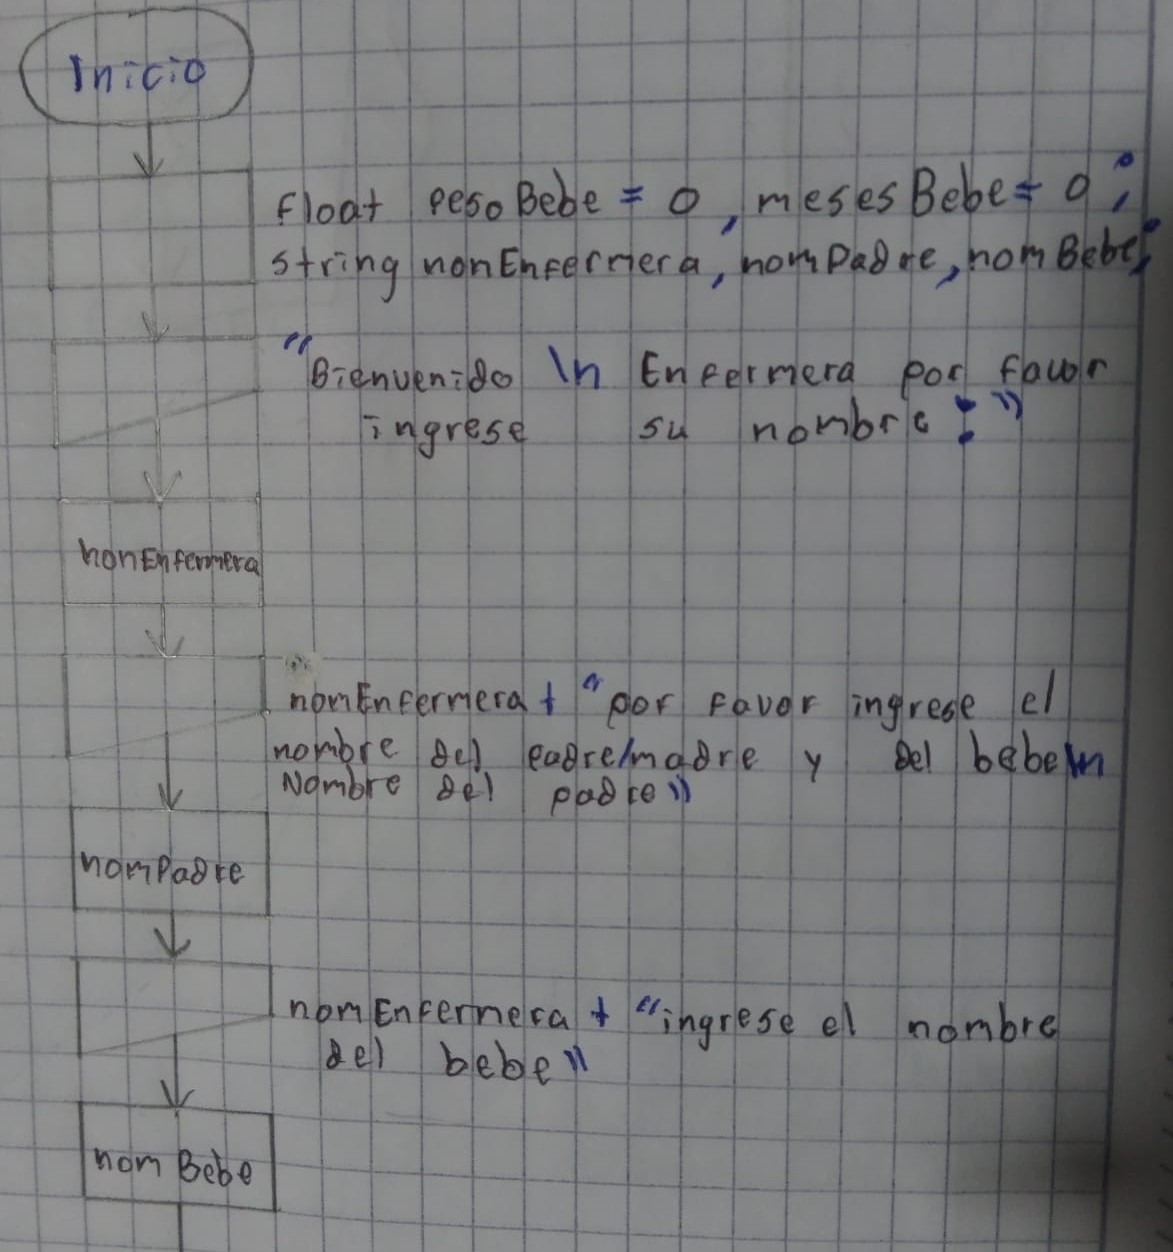 Inicio
float pesoBebe = 0, mesesBebe = 0;
string nonEnfermera, nomPadre, nomBebe;
"Bienvenido \n Enfermera por favor
ingrese su nombre:"
nonEnfermera
nomEnfermera + "por favor ingrese el
nombre del padre/madre y del bebe\n
Nombre del padre"
nomPadre
nomEnfermera + "ingrese el nombre
del bebe"
nom Bebe